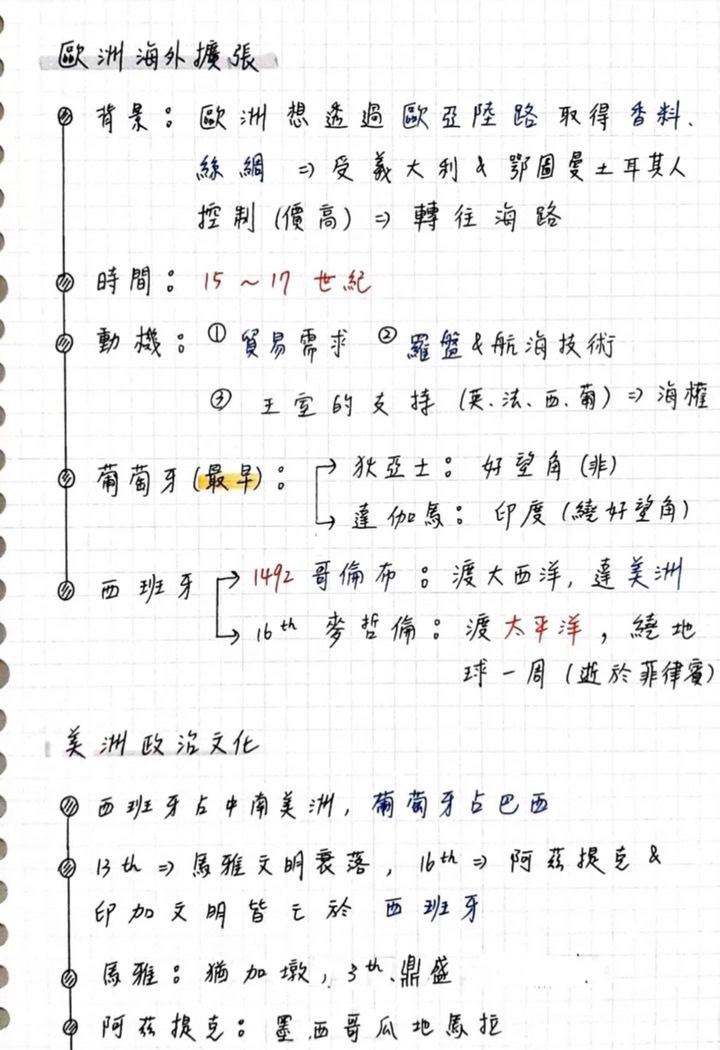 歐洲海外擴張
背景：歐洲想透過歐亞陸路取得香料、
絲綢 ⇒ 受義大利&鄂圖曼土耳其人
控制(價高) ⇒ 轉往海路
時間：15～17世紀
動機：① 貿易需求 ② 羅盤&航海技術
③ 王室的支持 (英、法、西、葡) ⇒ 海權
葡萄牙(最早)： → 狄亞士：好望角(非)
→ 達伽馬：印度(繞好望角)
西班牙 → 1492 哥倫布：渡大西洋, 達美洲
→ 16th 麥哲倫：渡太平洋, 繞地
球一周(逝於菲律賓)
美洲政治文化
西班牙占中南美洲, 葡萄牙占巴西
13th ⇒ 馬雅文明衰落, 16th ⇒ 阿茲提克 &
印加文明皆亡於 西班牙
馬雅：猶加墩, 3th、鼎盛
阿茲提克：墨西哥瓜地馬拉